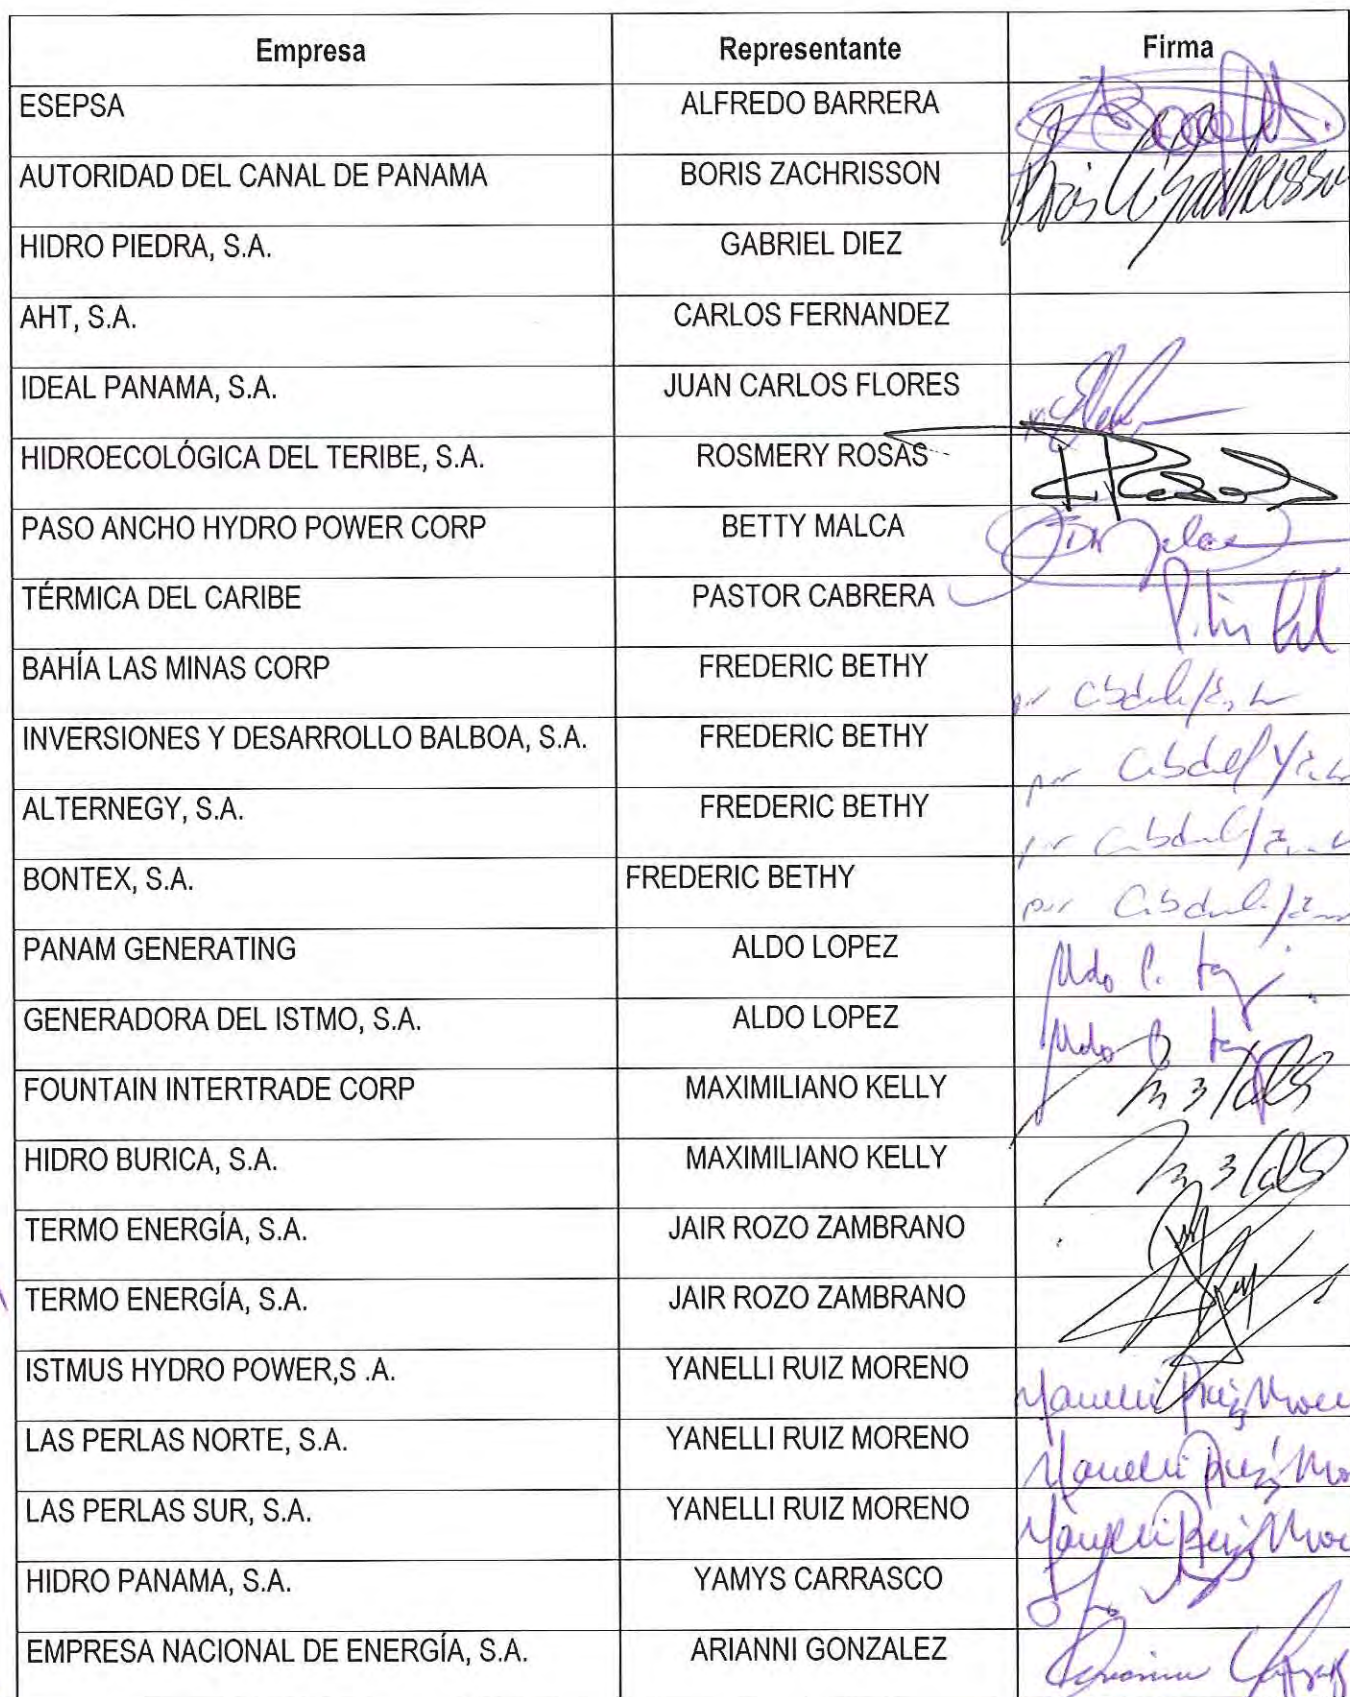 Empresa Representante Firma
ESEPSA ALFREDO BARRERA
AUTORIDAD DEL CANAL DE PANAMA BORIS ZACHRISSON
HIDRO PIEDRA, S.A. GABRIEL DIEZ
AHT, S.A. CARLOS FERNANDEZ
IDEAL PANAMA, S.A. JUAN CARLOS FLORES
HIDROECOLÓGICA DEL TERIBE, S.A. ROSMERY ROSAS
PASO ANCHO HYDRO POWER CORP BETTY MALCA
TÉRMICA DEL CARIBE PASTOR CABRERA
BAHÍA LAS MINAS CORP FREDERIC BETHY
INVERSIONES Y DESARROLLO BALBOA, S.A. FREDERIC BETHY por
ALTERNEGY, S.A. FREDERIC BETHY por
BONTEX, S.A. FREDERIC BETHY por
PANAM GENERATING ALDO LOPEZ Aldo
GENERADORA DEL ISTMO, S.A. ALDO LOPEZ Aldo
FOUNTAIN INTERTRADE CORP MAXIMILIANO KELLY
HIDRO BURICA, S.A. MAXIMILIANO KELLY
TERMO ENERGÍA, S.A. JAIR ROZO ZAMBRANO
TERMO ENERGÍA, S.A. JAIR ROZO ZAMBRANO
ISTMUS HYDRO POWER,S .A. YANELLI RUIZ MORENO Yanelli Ruiz
LAS PERLAS NORTE, S.A. YANELLI RUIZ MORENO Yanelli Ruiz
LAS PERLAS SUR, S.A. YANELLI RUIZ MORENO Yanelli Ruiz
HIDRO PANAMA, S.A. YAMYS CARRASCO
EMPRESA NACIONAL DE ENERGÍA, S.A. ARIANNI GONZALEZ